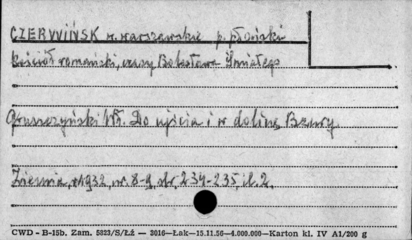 CZERWIŃSK w. warszawskie p. płoński
Kościół romański, czasy Bolesława Śmiałego
Gruszczyński Wł. Do ujścia i w dolinę Bzury
Ziemia, r. 1932, nr. 8-9, str. 234-235 il. 2.
CWD - B-15b. Zam. 5823/S/Łż — 2016—Łak—15.11.56—4.000.000—Karton kl. IV A1/200 g